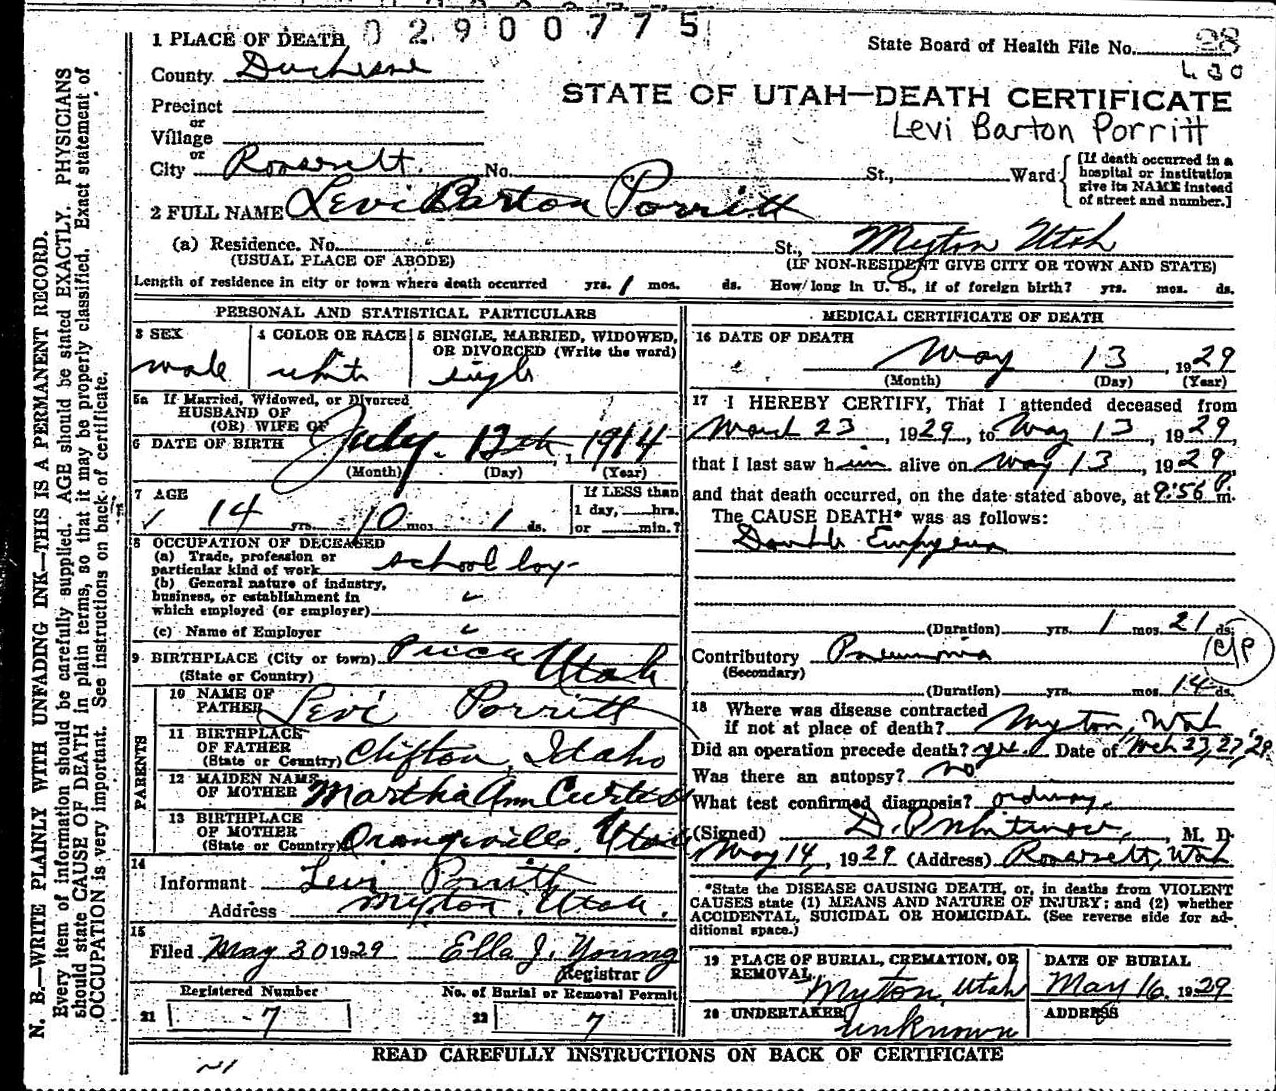 02900775
1 PLACE OF DEATH
State Board of Health File No. 28
County Duchesne
L 30
STATE OF UTAH—DEATH CERTIFICATE
Precinct
Levi Barton Porritt
or
Village
or
City Roosevelt No. St., Ward
[If death occurred in a hospital or institution give its NAME instead of street and number.]
2 FULL NAME Levi Barton Porritt
(a) Residence. No. St., Myton Utah
(USUAL PLACE OF ABODE) (IF NON-RESIDENT GIVE CITY OR TOWN AND STATE)
Length of residence in city or town where death occurred yrs. 1 mos. ds. How long in U. S., if of foreign birth? yrs. mos. ds.
PERSONAL AND STATISTICAL PARTICULARS
3 SEX male
4 COLOR OR RACE white
5 SINGLE, MARRIED, WIDOWED, OR DIVORCED (Write the word) single
5a If Married, Widowed, or Divorced
HUSBAND OF
(OR) WIFE OF
6 DATE OF BIRTH July 12th, 1914
(Month) (Day) (Year)
7 AGE 14 yrs. 10 mos. 1 ds.
If LESS than 1 day, hrs. or min.?
8 OCCUPATION OF DECEASED
(a) Trade, profession or particular kind of work school boy
(b) General nature of industry, business, or establishment in which employed (or employer)
(c) Name of Employer
9 BIRTHPLACE (City or town) Price Utah
(State or Country)
PARENTS
10 NAME OF FATHER Levi Porritt
11 BIRTHPLACE OF FATHER (State or Country) Clifton, Idaho
12 MAIDEN NAME OF MOTHER Martha Ann Curtis
13 BIRTHPLACE OF MOTHER (State or Country) Orangeville, Utah
14
Informant Levi Porritt
Address Myton, Utah.
15
Filed May 30 1929 Ella J. Young
Registrar
Registered Number No. of Burial or Removal Permit
21 7 22 7
MEDICAL CERTIFICATE OF DEATH
16 DATE OF DEATH
May 13, 1929
(Month) (Day) (Year)
17 I HEREBY CERTIFY, That I attended deceased from
March 23, 1929, to May 13, 1929,
that I last saw him alive on May 13, 1929,
and that death occurred, on the date stated above, at 9:56 P m.
The CAUSE DEATH* was as follows:
Double Empyema
(Duration) yrs. 1 mos. 21 ds.
Contributory Pneumonia
(Secondary)
(Duration) yrs. mos. 14 ds.
18 Where was disease contracted
if not at place of death? Myton, Utah
Did an operation precede death? yes. Date of Mch 23, 27, '29
Was there an autopsy? no
What test confirmed diagnosis? ordinary.
(Signed) M. D.
May 14, 1929 (Address) Roosevelt, Utah
*State the DISEASE CAUSING DEATH, or, in deaths from VIOLENT
CAUSES state (1) MEANS AND NATURE OF INJURY; and (2) whether
ACCIDENTAL, SUICIDAL OR HOMICIDAL. (See reverse side for ad-
ditional space.)
19 PLACE OF BURIAL, CREMATION, OR REMOVAL Myton, Utah
DATE OF BURIAL May 16, 1929
20 UNDERTAKER unknown
ADDRESS
READ CAREFULLY INSTRUCTIONS ON BACK OF CERTIFICATE
N. B.—WRITE PLAINLY WITH UNFADING INK—THIS IS A PERMANENT RECORD.
Every item of information should be carefully supplied. AGE should be stated EXACTLY. PHYSICIANS
should state CAUSE OF DEATH in plain terms, so that it may be properly classified. Exact statement of
OCCUPATION is very important. See instructions on back of certificate.